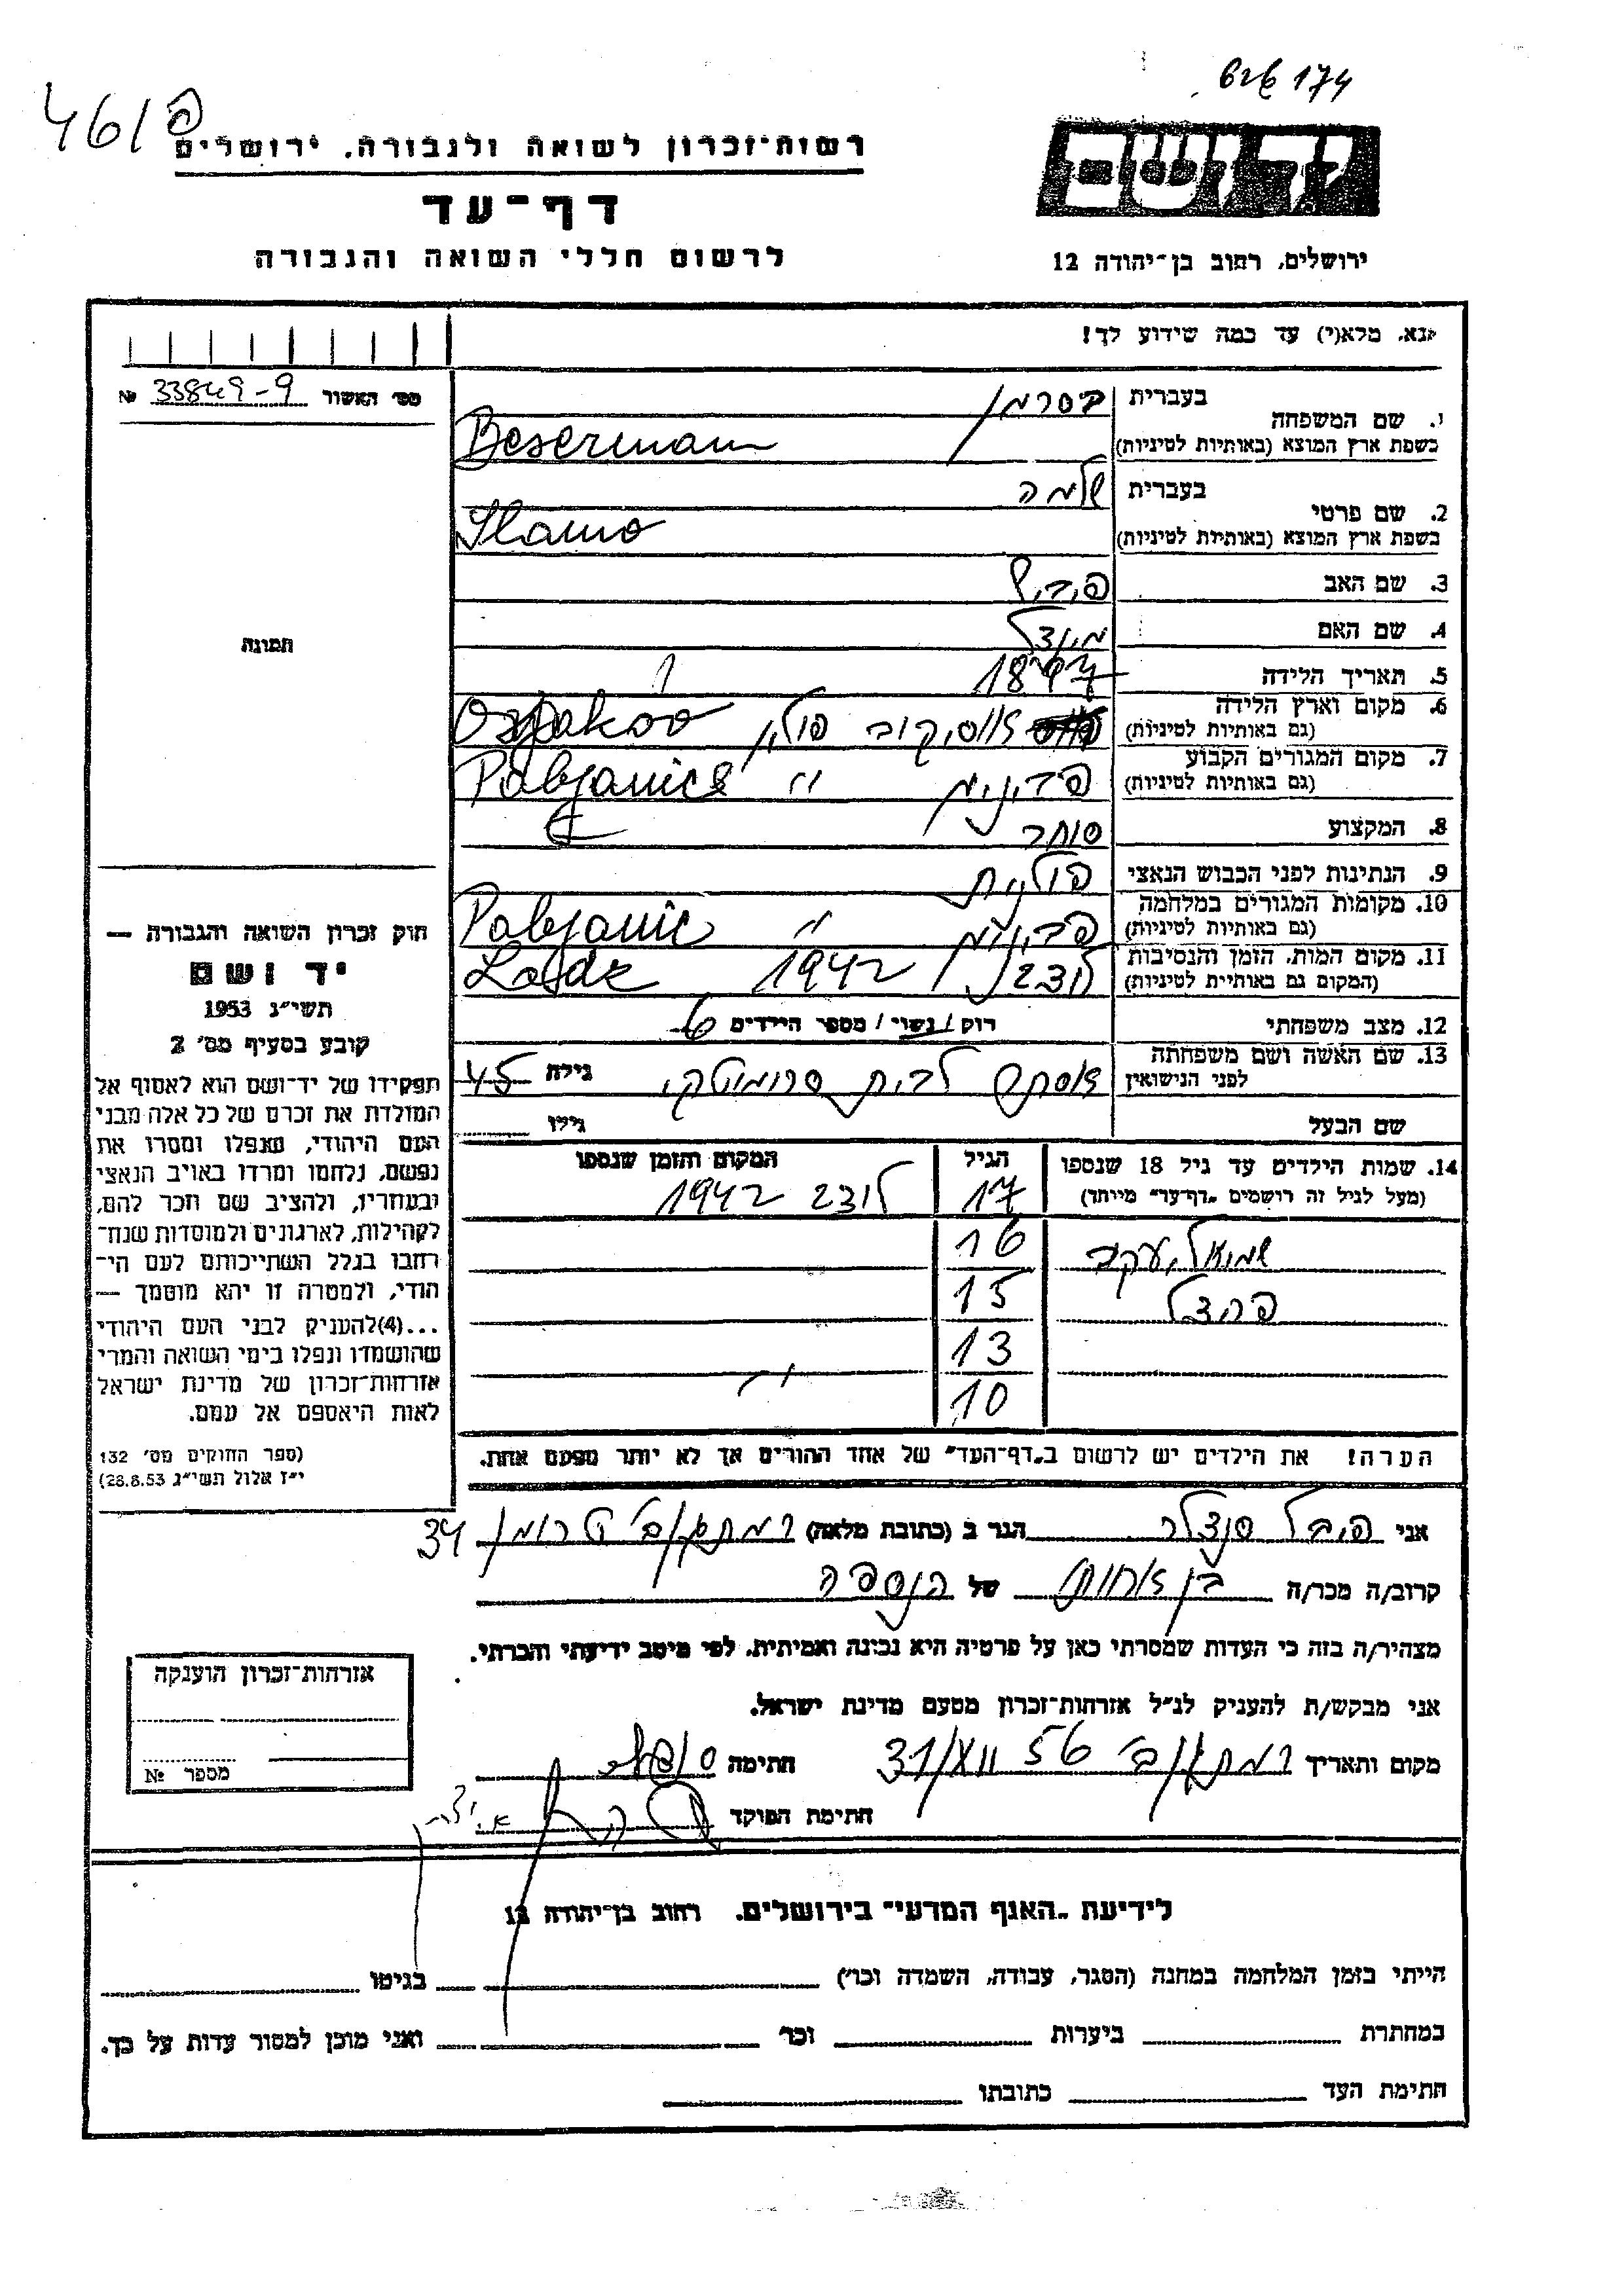 174
461
רשות-זכרון לשואה ולגבורה, ירושלים
דף-עד
לרשום חללי השואה והגבורה
ירושלים, רחוב בן-יהודה 12
נא, מלא(י) עד כמה שידוע לך!
מס' האשור № 33849-9
תמונה
1. שם המשפחה בעברית ביסרמן
בשפת ארץ המוצא (באותיות לטיניות) Beserman
2. שם פרטי בעברית שלמה
בשפת ארץ המוצא (באותיות לטיניות) Slamo
3. שם האב
4. שם האם
5. תאריך הלידה
6. מקום וארץ הלידה פולין
(גם באותיות לטיניות)
7. מקום המגורים הקבוע פביניץ " Pabjanice
(גם באותיות לטיניות)
8. המקצוע סוחר
9. הנתינות לפני הכבוש הנאצי פולנית
10. מקומות המגורים במלחמה פביניץ " Pabjanic
(גם באותיות לטיניות)
11. מקום המות, הזמן והנסיבות לודז' 1942
(המקום גם באותיות לטיניות)
12. מצב משפחתי רוק / נשוי / מספר הילדים 6
13. שם האשה ושם משפחתה אסתר לבית גילה 45
לפני הנישואין
שם הבעל גילו
14. שמות הילדים עד גיל 18 שנספו הגיל המקום והזמן שנספו
(מעל לגיל זה רושמים "דף-עד" מיוחד) 17 לודז 1942
שמואל, יעקב 16
הרצל 15
13
10 "
הערה! את הילדים יש לרשום ב"דף-העד" של אחד ההורים אך לא יותר מפעם אחת.
חוק זכרון השואה והגבורה —
יד ושם
תשי"ג 1953
קובע בסעיף מס' 2
תפקידו של יד-ושם הוא לאסוף אל
המולדת את זכרם של כל אלה מבני
העם היהודי, שנפלו ומסרו את
נפשם, נלחמו ומרדו באויב הנאצי
ובעוזריו, ולהציב שם וזכר להם,
לקהילות, לארגונים ולמוסדות שנח־
רבו בגלל השתייכותם לעם הי־
הודי, ולמטרה זו יהא מוסמך —
...(4) להעניק לבני העם היהודי
שהושמדו ונפלו בימי השואה והמרי
אזרחות-זכרון של מדינת ישראל
לאות היאספם אל עמם.
(ספר החוקים מס' 132
י"ז אלול תשי"ג 28.8.53)
אני הגר ב (כתובת מלאה) רמת גן 34
קרוב/ה מכר/ה בן אחות של הנספה
מצהיר/ה בזה כי העדות שמסרתי כאן על פרטיה היא נכונה ואמיתית, לפי מיטב ידיעתי והכרתי.
אני מבקש/ת להעניק לנ"ל אזרחות-זכרון מטעם מדינת ישראל.
מקום ותאריך רמת גן חתימה
חתימת הפוקד
אזרחות-זכרון הוענקה
מספר №
לידיעת "האגף המדעי" בירושלים, רחוב בן-יהודה 12
הייתי בזמן המלחמה במחנה (הסגר, עבודה, השמדה וכו') בגיטו
במחתרת ביערות וכו' ואני מוכן למסור עדות על כך.
חתימת העד כתובתו